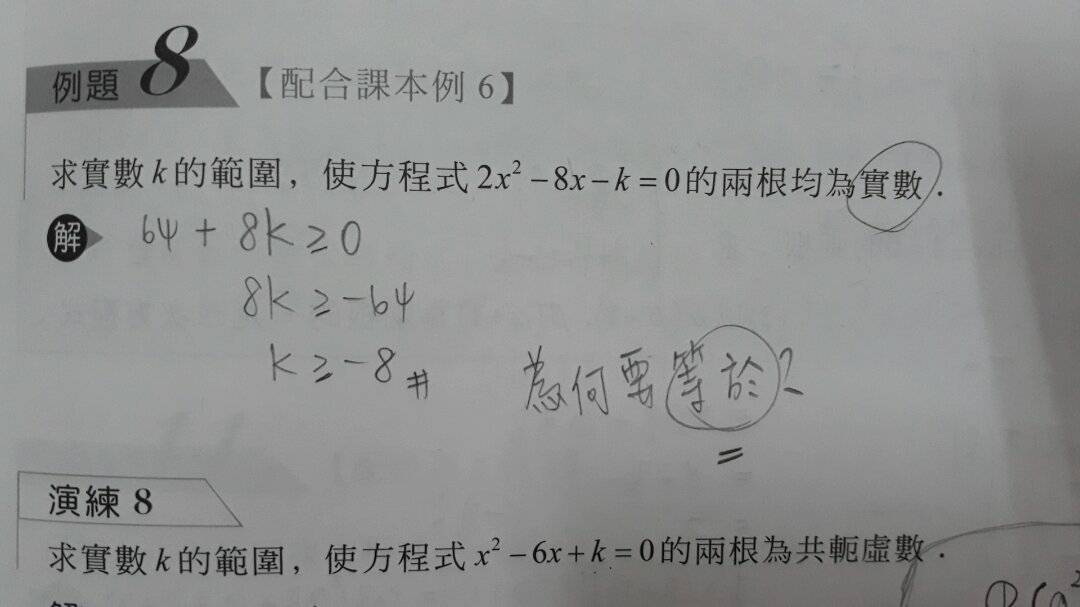 例題 8 【配合課本例 6】
求實數 k 的範圍，使方程式 2x² − 8x − k = 0 的兩根均為實數．
解 64 + 8k ≥ 0
8k ≥ −64
k ≥ −8 #
為何要等於？
=
演練 8
求實數 k 的範圍，使方程式 x² − 6x + k = 0 的兩根為共軛虛數．